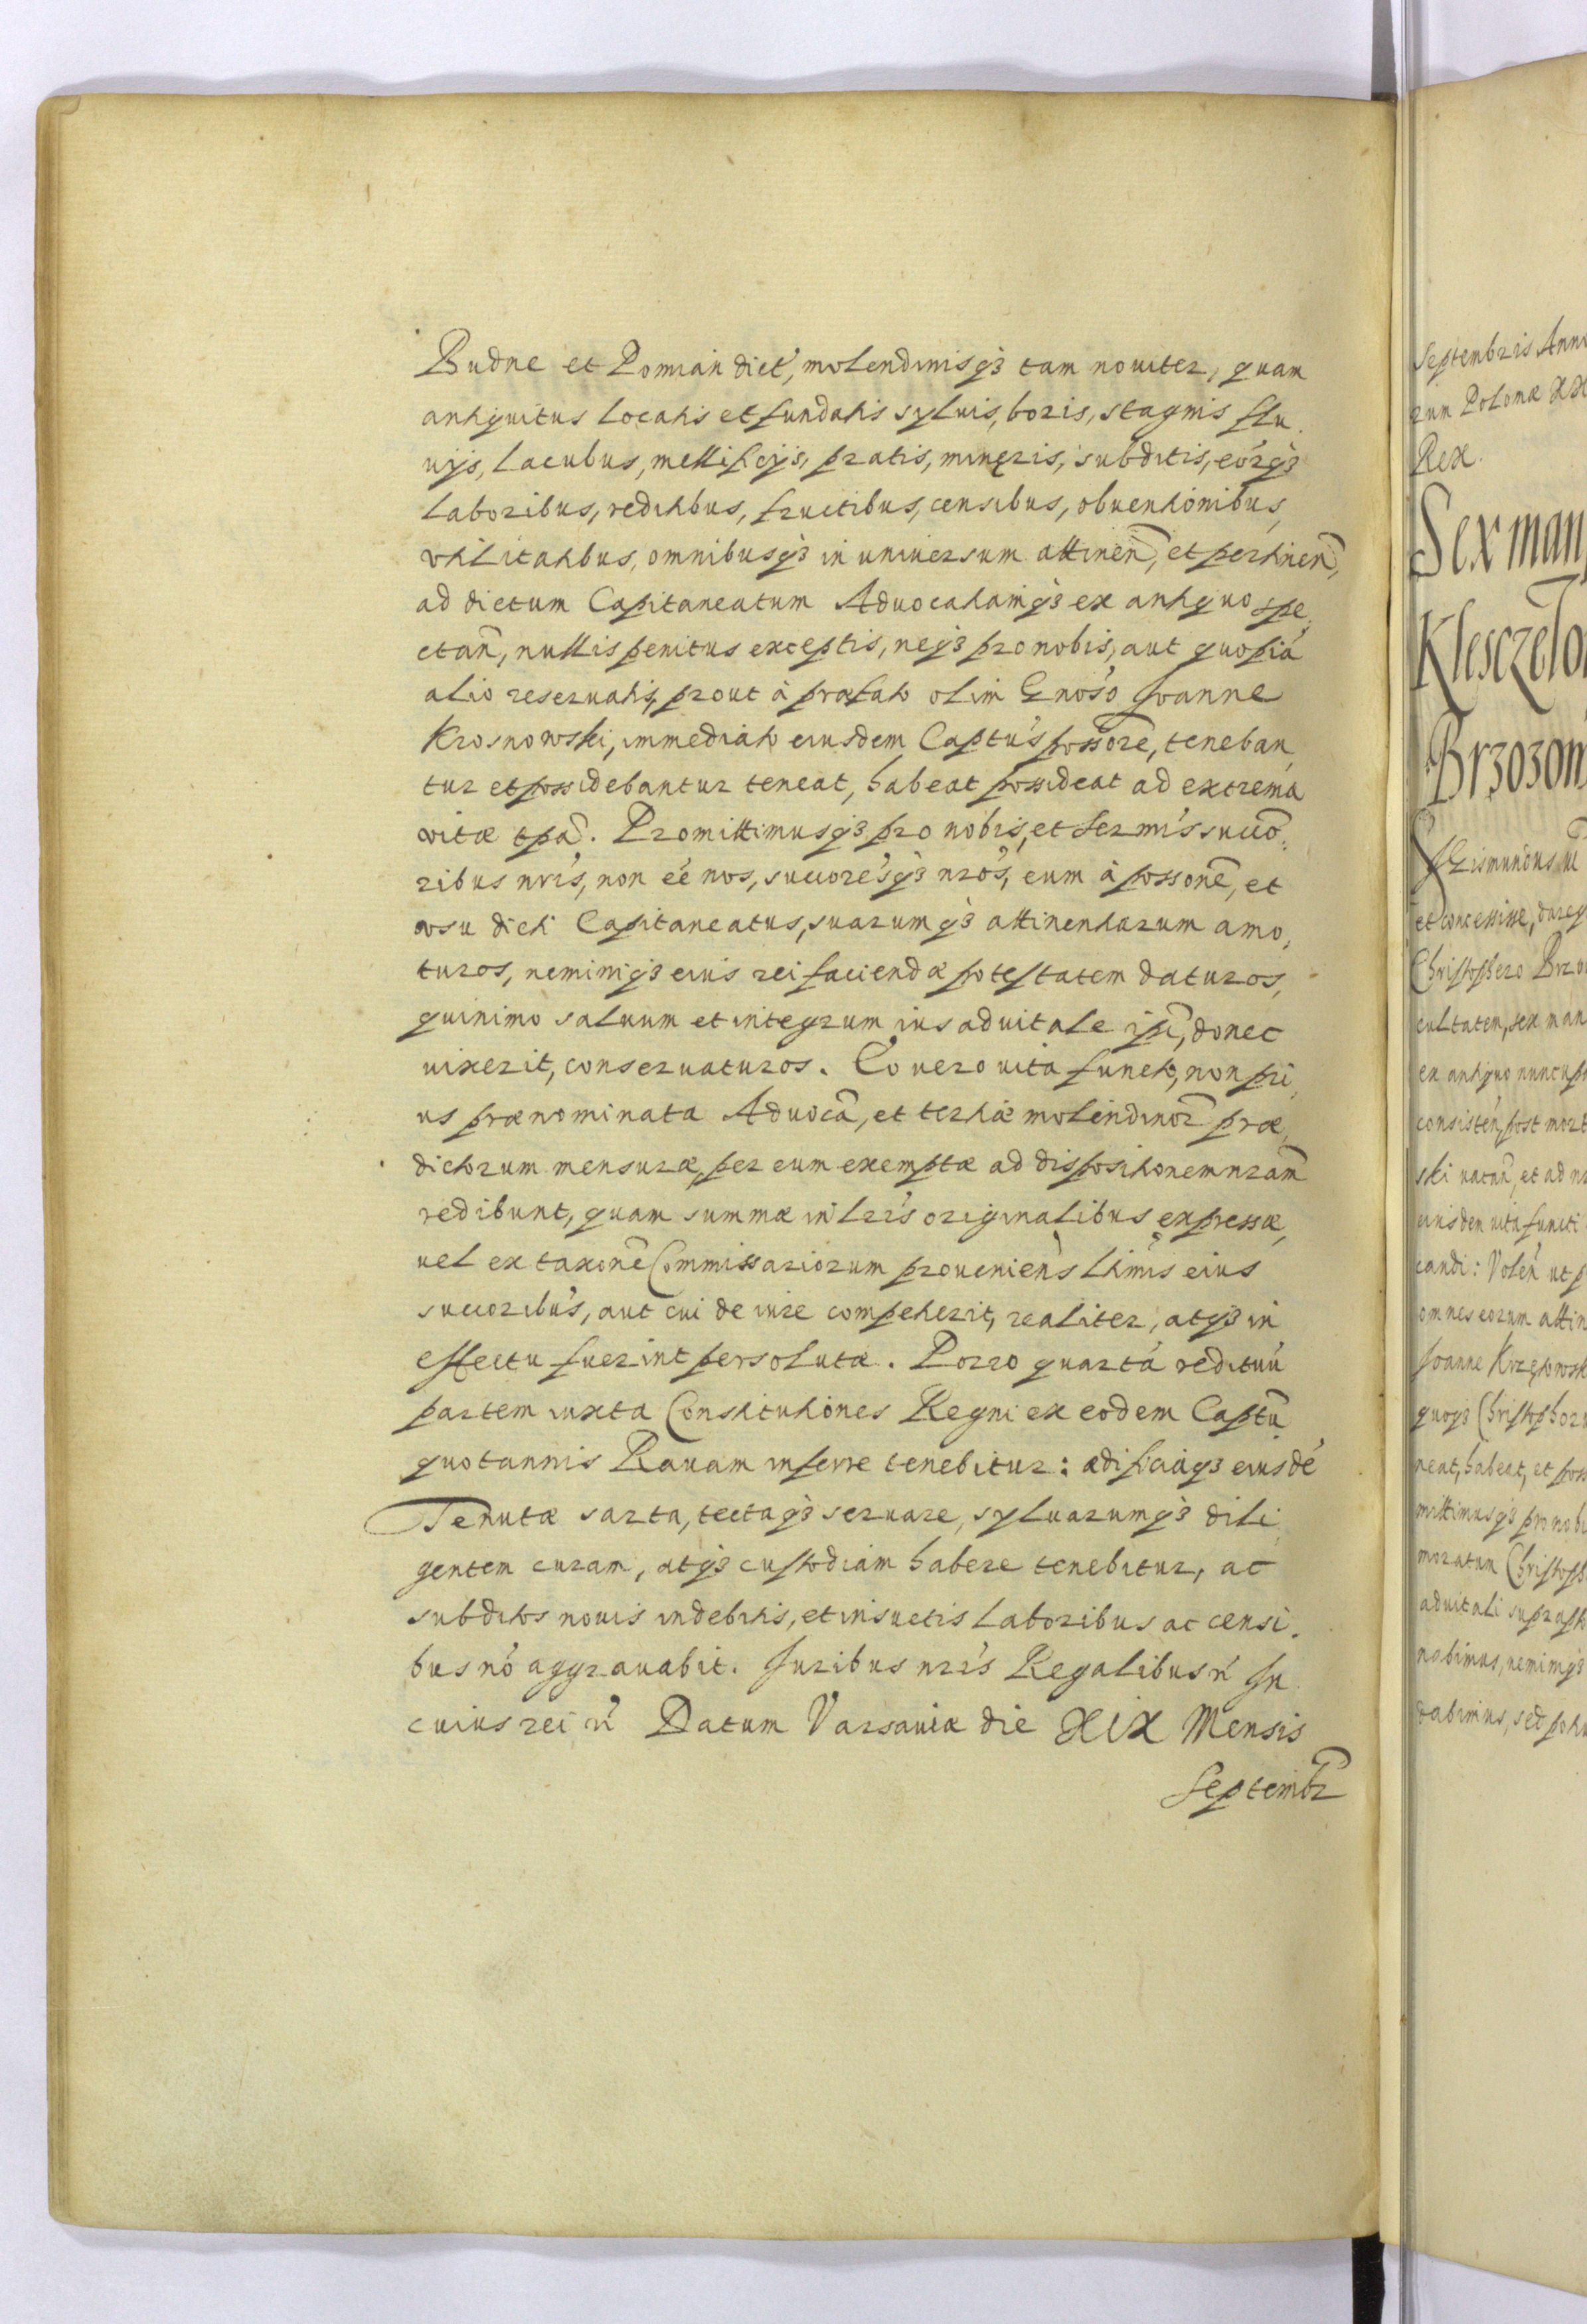 Budne et Pomian dict', molendinisq3 tam nouiter, quam
antiquitus locatis et fundatis syluis, boris, stagnis flu,
uijs, lacubus, mellificijs, pratis, mineris, subditis, eórq3
laboribus, reditibus, fructibus, censibus, obuentionibus,
vtilitatibus, omnibusq3 in uniuersum attineñ, et pertineñ,
ad dictum Capitaneatum Aduocatiamq3 ex antiquo spe,
ctañ, nullis penitus exceptis, neq3 pro nobis, aut quopiá
alio reseruatis, prout à præfato olim Gnoso Joanne
Krosnowski, immediato eiusdem Captus possore, teneban,
tur et possidebantur teneat, habeat possideat ad extrema
vitæ tpa. Promittimusq3 pro nobis, et Sermis succo,
ribus nris, non ée nos, succoresq3 nros, eum à possone, et
vsu dicti Capitaneatus, suarumq3 attinentiarum amo,
turos, neminiq3 eius rei faciendæ potestatem daturos,
quinimo saluum et integrum ius aduitale ipi, donec
vixerit, conseruaturos. Eo uero uita functo, non pri,
us prænominata Aduoca, et tertiæ molendinor præ,
dictorum mensuræ, per eum exemptæ ad dispositionem nram
redibunt, quam summæ in lris originalibus expressæ,
uel ex taxone Commissariorum prouenieñs ltimis eius
succoribus, aut cui de iure competierit, realiter, atq3 in
effectu fuerint persolutæ. Porro quartá redituú
partem iuxta Constitutiones Regni ex eodem Captu
quotannis Rauam inferre tenebitur: ædificiaq3 eiusdé
Tenutæ sarta, tectaq3 seruare, syluarumq3 dili,
gentem curam, atq3 custodiam habere tenebitur, ac
subditos nouis indebitis, et insuetis laboribus ac censi,
bus nó aggrauabit. Juribus nris Regalibus ñ Jn
cuius rei ñ Datum Varsauiæ die XIX Mensis
Septembr
Septembris Anno
rum Poloniæ
Rex.
Sex man
Klesczelo
Brzozow
Sigismundus
et concessisse, dareq
Christophero Brzo
cultatem, sex man
ex antiquo nuncup
consisteñ, post mort
ski uacañ, et ad n
eiusdem uita functi
candi: Voleñ ut p
omnes eorum attin
Joanne
quoq3 Christophor
neat, habeat, et poss
mittimusq3 pro nobi
moratum Christoph
aduitali
nobimus, neminiq3
dabimus, sed poti